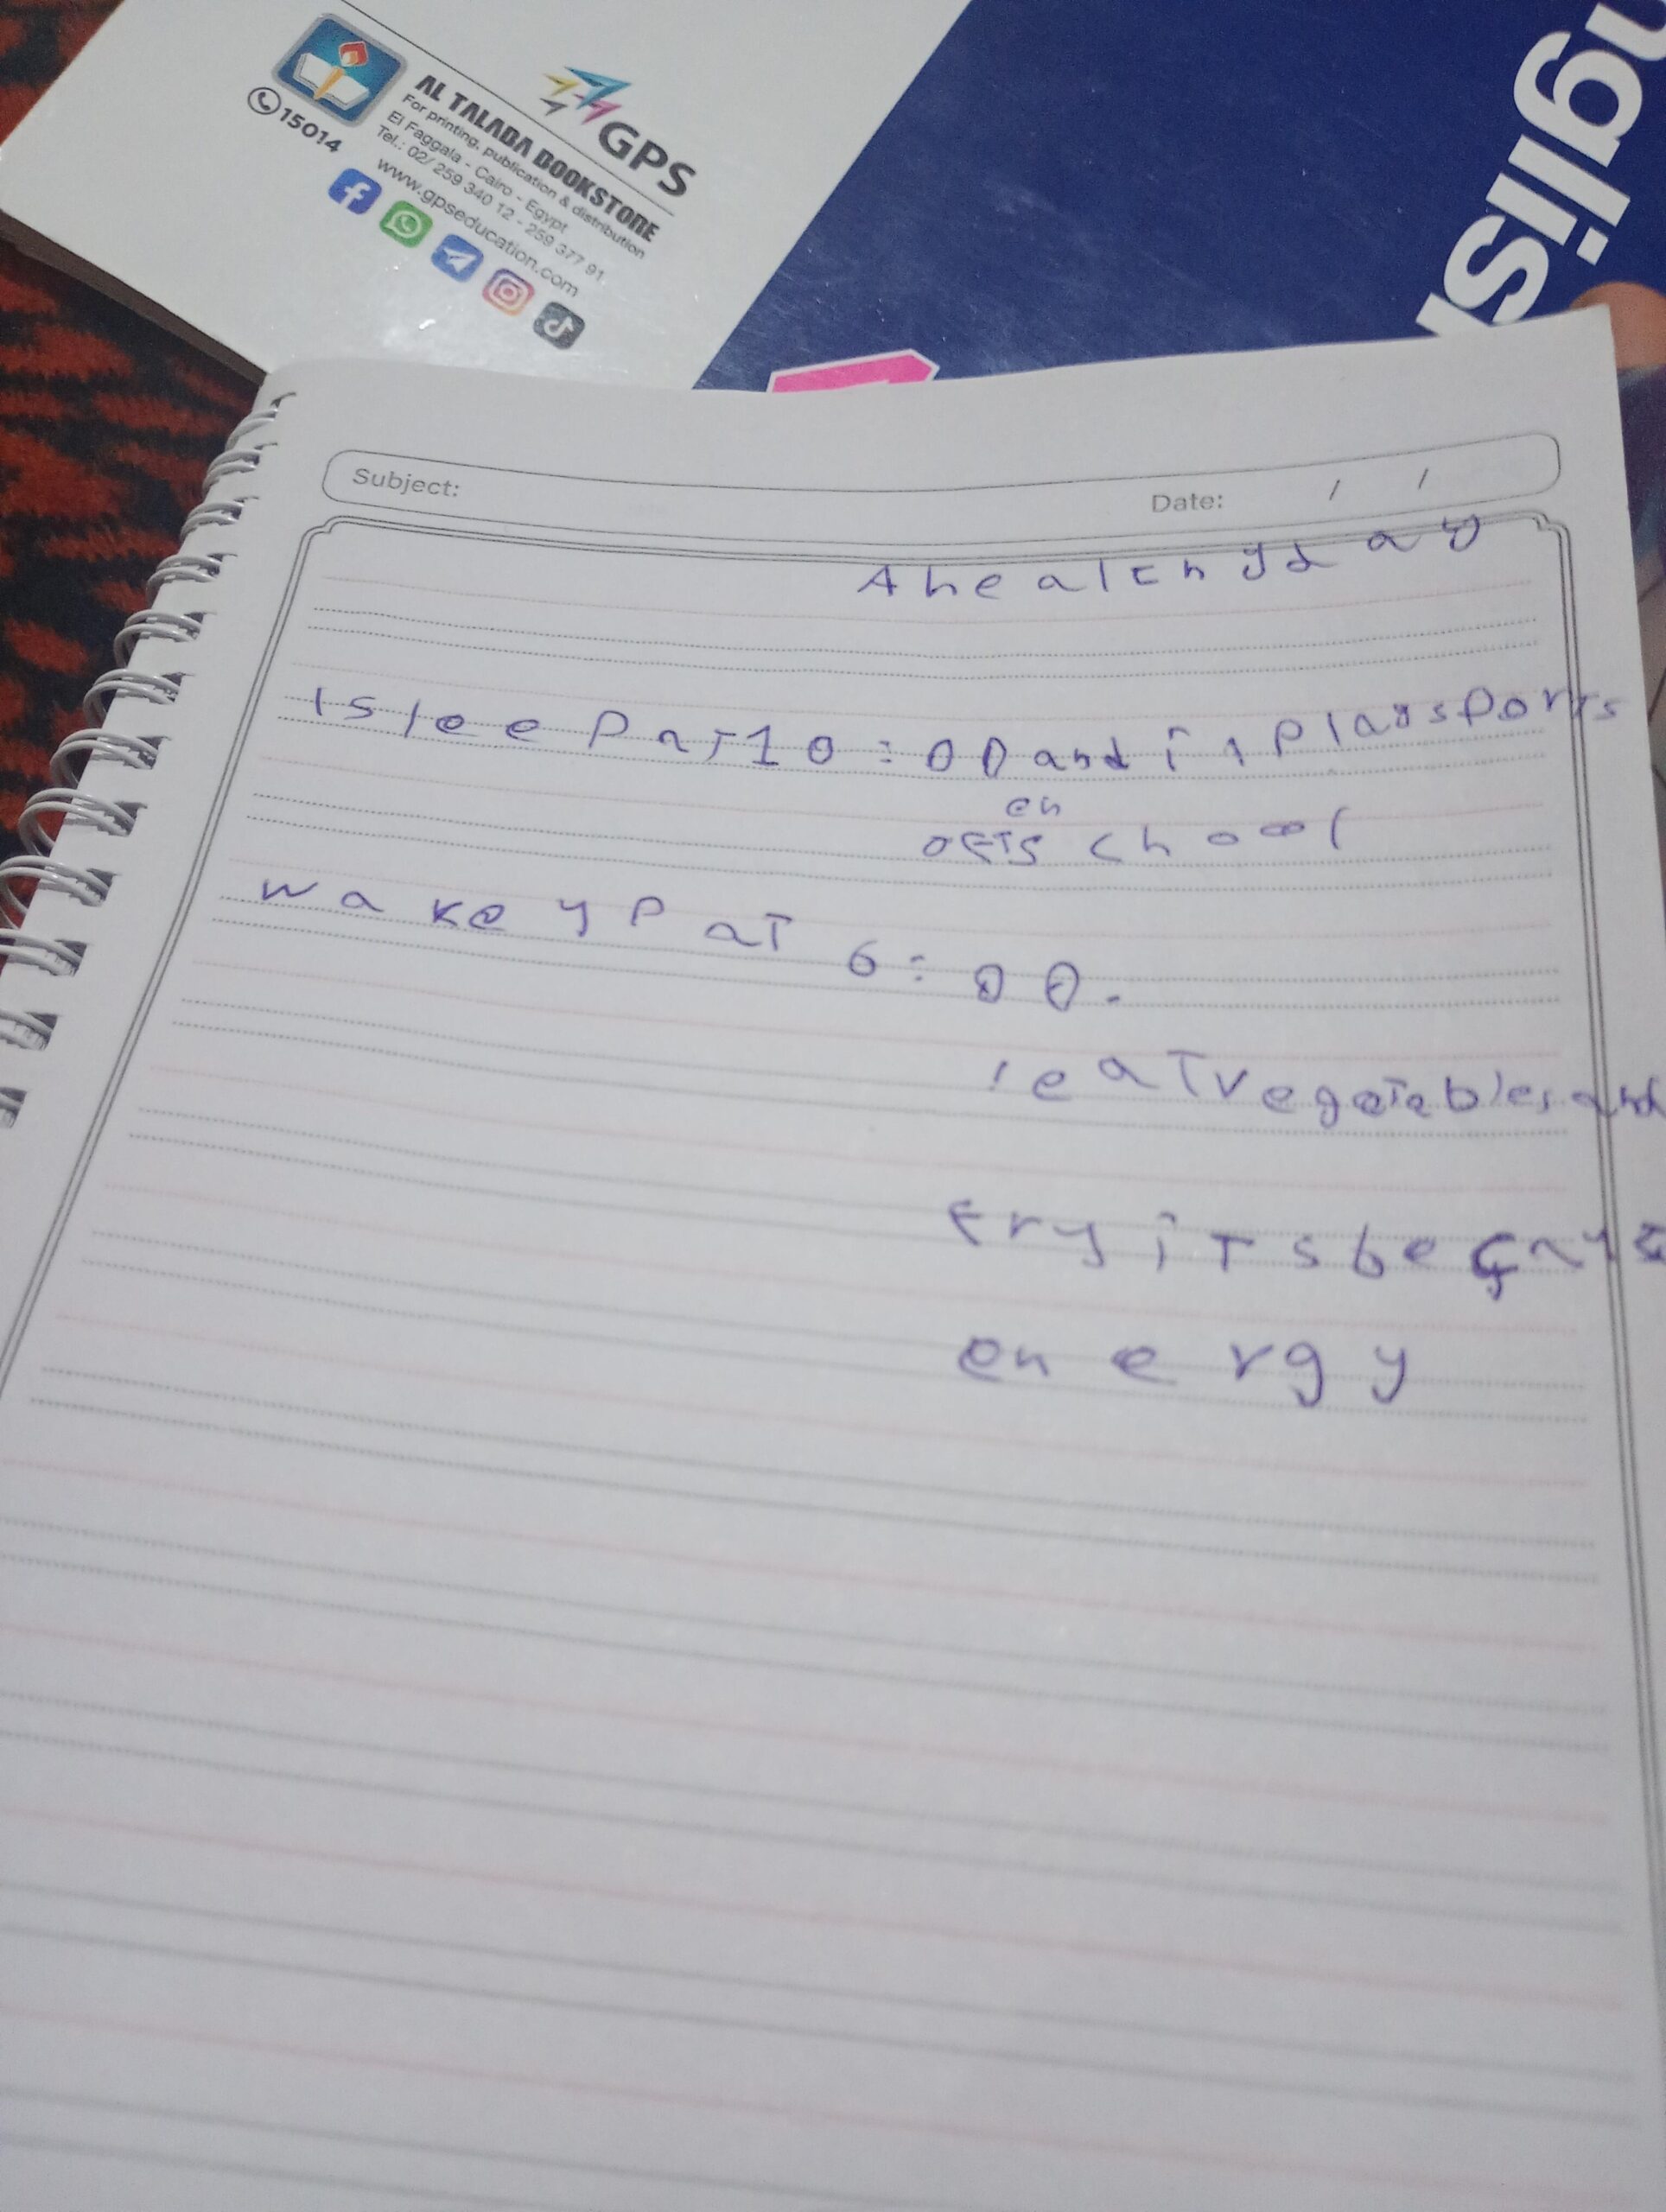 GPS
AL TALABA BOOKSTORE
For printing, publication & distribution
El Faggala - Cairo - Egypt
Tel.: 02/ 259 340 12 - 259 377 91
www.gpseducation.com
15014
nglis
Subject:
Date: / /
A healthy day
I sleep at 10:00 and i play sports
en
oft school
wake yp at 6:00.
I eat vegetables and
fry it's be
energy